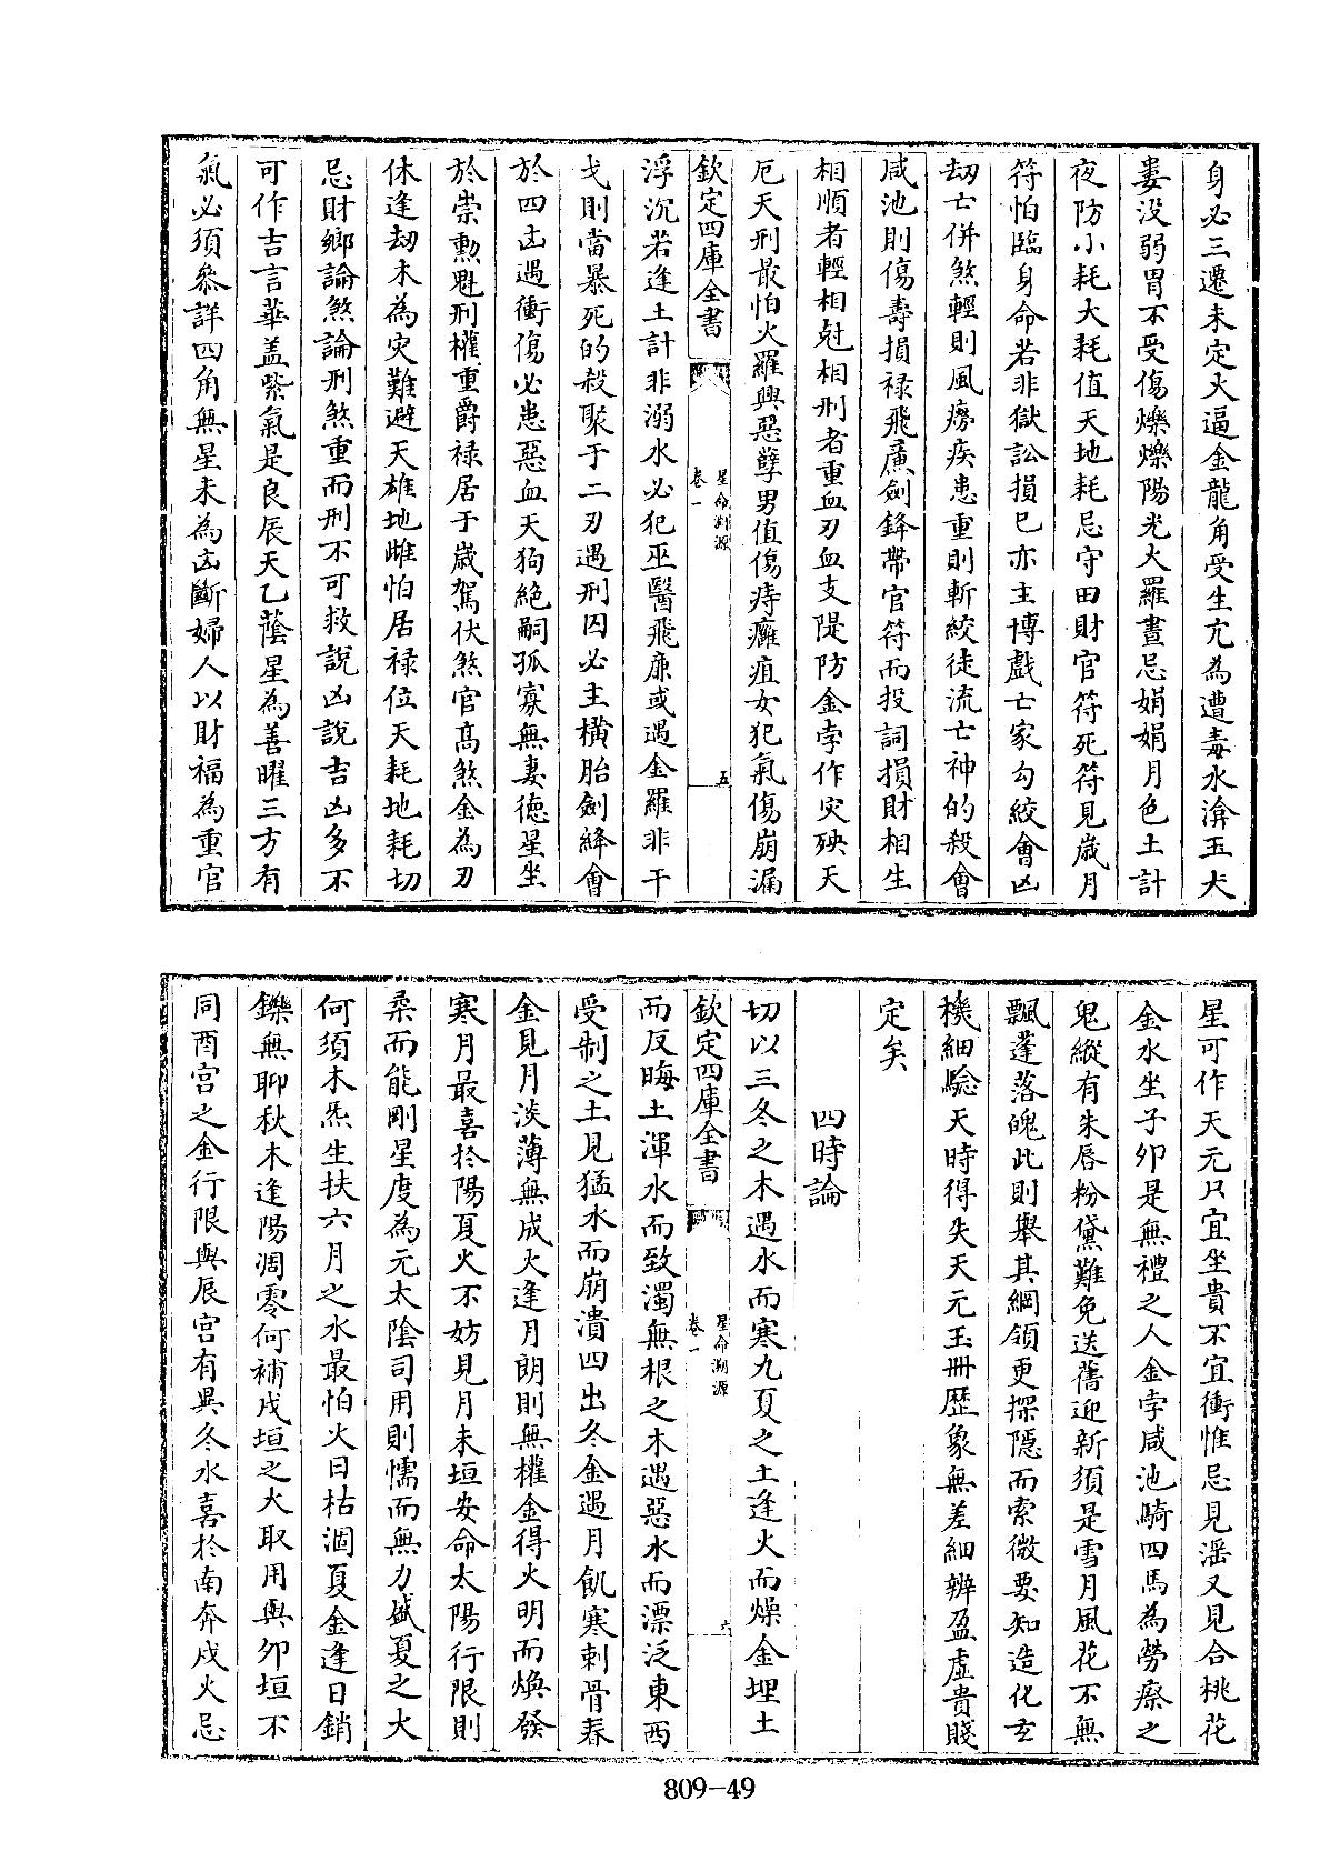 身必三遷未定火逼金龍角受生亢為遭毒水滃玉犬
婁没弱胃不受傷爍爍陽光火羅晝忌娟娟月色土計
夜防小耗大耗值天地耗忌守田財官符死符見歳月
符怕臨身命若非獄訟損已亦主博戲亡家勾絞會凶
劫亡併煞輕則風癆疾患重則斬絞徒流亡神的殺會
咸池則傷壽損禄飛亷劍鋒帶官符而投詞損財相生
相順者輕相尅相刑者重血刃血支隄防金孛作灾殃天
厄天刑最怕火羅興惡孽男值傷痔癱疽女犯氣傷崩漏
欽定四庫全書
星命溯源
卷一
五
浮沉若逢土計非溺水必犯巫醫飛廉或遇金羅非干
戈則當暴死的殺聚于二刃遇刑囚必主横胎劍絳會
於四㐫遇衝傷必患惡血天狗絶嗣孤寡無妻徳星坐
於崇勲魁刑權重爵禄居于歳駕伏煞官髙煞金為刃
休逢刼木為灾難避天雄地雌怕居禄位天耗地耗切
忌財鄉論煞論刑煞重而刑不可救說凶說吉凶多不
可作吉言華盖紫氣是良辰天乙蔭星為善曜三方有
氣必須叅詳四角無星未為㐫斷婦人以財福為重官
星可作天元只宜坐貴不宜衝惟忌見滛又見合桃花
金水坐子夘是無禮之人金孛咸池騎四馬為勞瘵之
鬼縱有朱唇粉黛難免送舊迎新須是雪月風花不無
飄蓬落魄此則舉其綱領更探隱而索微要知造化玄
機細驗天時得失天元玉冊歴象無差細辨盈虚貴賤
定矣
四時論
切以三冬之木遇水而寒九夏之土逢火而燥金埋土
欽定四庫全書
星命溯源
卷一
六
而反晦土渾水而致濁無根之木遇惡水而漂泛東西
受制之土見猛水而崩潰四出冬金遇月飢寒刺骨春
金見月淡薄無成火逢月朗則無權金得火明而煥發
寒月最喜於陽夏火不妨見月未垣安命太陽行限則
柔而能剛星度為元太陰司用則懦而無力盛夏之火
何須木炁生扶六月之水最怕火日枯涸夏金逢日銷
鑠無聊秋木逢陽凋零何補戌垣之火取用與夘垣不
同酉宫之金行限與辰宫有異冬水喜於南奔戌火忌